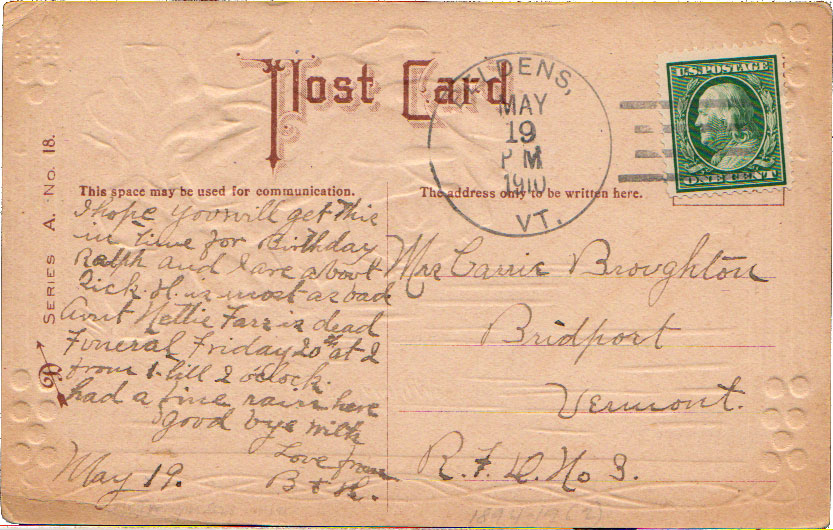 Post Card
BELDENS,
MAY
19
PM
1910
VT.
U.S. POSTAGE
ONE CENT
SERIES A. No. 18.
This space may be used for communication.
The address only to be written here.
I hope you will get this
in time for Birthday
Ralph and I are about
sick. H. is most as bad
Aunt Nettie Farr is dead
Funeral Friday 20th at 2
from 1 till 2 o'clock.
had a fine rain here
good bye with
Love from
B & R.
May 19.
Mrs Carrie Broughton
Bridport
Vermont.
R. F. D. No 3.